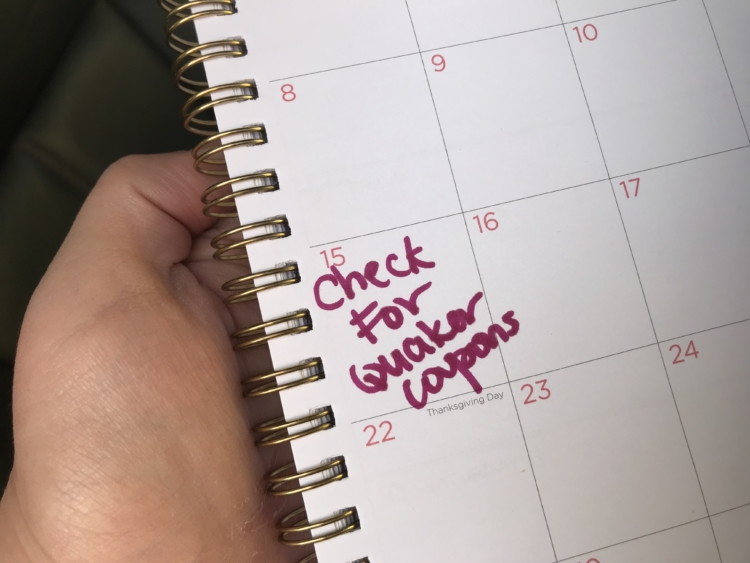 8
9
10
15
16
17
Check
For
Quaker
coupons
22
Thanksgiving Day
23
24